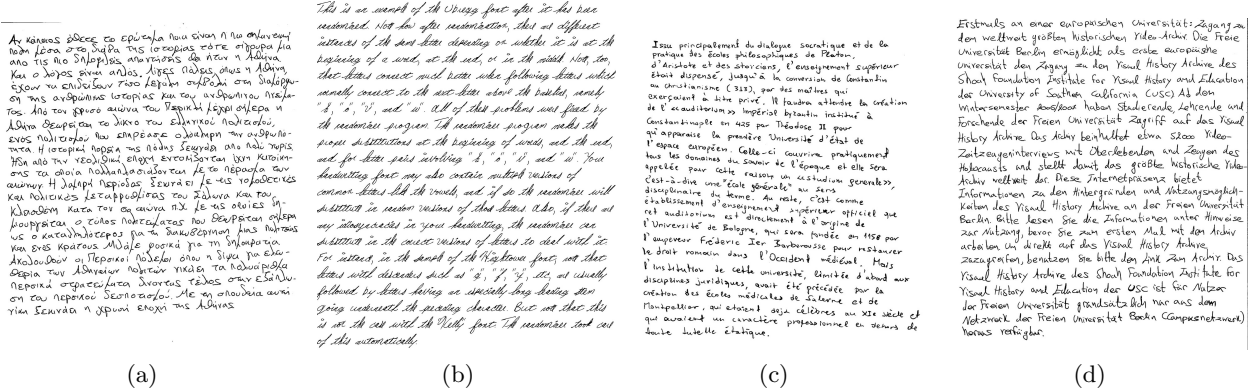 Αν κάποιος έθετε το ερώτημα ποια είναι η πιο σημαντική
πόλη μέσα στο διάβα της ιστορίας τότε σίγουρα μία
από τις πιο δημοφιλείς απαντήσεις θα ήταν η Αθήνα.
Και ο λόγος είναι απλός. Λίγες πόλεις όπως η Αθήνα
έχουν να επιδείξουν τόσο μεγάλη συμβολή στη διαμόρφω-
ση της ανθρώπινης ιστορίας και του ανθρώπινου πνεύμα-
τος. Από τον χρυσό αιώνα του Περικλή μέχρι σήμερα η
Αθήνα θεωρείται το λίκνο του ελληνικού πολιτισμού,
ενός πολιτισμού που επηρέασε ολόκληρη την ανθρωπό-
τητα. Η ιστορική πορεία της πόλης ξεκινάει από πολύ νωρίς.
Ήδη από την νεολιθική εποχή εντοπίζονται ίχνη κατοίκη-
σης τα οποία πολλαπλασιάζονται με το πέρασμα των
αιώνων. Η λαμπρή περίοδος ξεκινάει με τις νομοθετικές
και πολιτικές μεταρρυθμίσεις του Σόλωνα και του
Κλεισθένη κατά τον 6ο αιώνα π.Χ. με τις οποίες δη-
μιουργείται ο τύπος πολιτεύματος που θεωρείται σήμερα
ως ο καταλληλότερος για τη διακυβέρνηση μιας πολιτείας
και ενός κράτους. Μιλάμε φυσικά για τη δημοκρατία.
Ακολουθούν οι Περσικοί πόλεμοι όπου η δίψα για ελευ-
θερία των Αθηναίων πολιτών νικάει τα πολυάριθμα
περσικά στρατεύματα δίνοντας τέλος στην εξάπλω-
ση του περσικού δεσποτισμού. Με τη σπουδαία αυτή
νίκη ξεκινάει η χρυσή εποχή της Αθήνας.
This is an example of the Ubrezg font after it has been
randomized. Not how after randomization, there are different
instances of the same letter depending on whether it is at the
beginning of a word, at the end, or in the middle. Note, too,
that letters connect much better when following letters which
normally connect to the next letter above the baseline, namely
"b", "o", "v", and "w". All of these problems were fixed by
the randomizer program. The randomizer program makes the
proper substitutions at the beginning of words, and the end,
and for letter pairs involving "b", "o", "v", and "w". Your
handwriting font may also contain multiple versions of
common letters like the vowels, and if so the randomizer will
substitute in random versions of those letters. Also, if there are
any idiosyncracies in your handwriting, the randomizer can
substitute in the correct versions of letters to deal with it.
For instance, in the sample of the Hightower font, note that
letters with descenders such as "g", "j", "y", etc, are usually
followed by letters having an especially long leading stem
going underneath the preceding character. But note that this
is not the case with the "Kelly" font. The randomizer took care
of this automatically.
Issu principalement du dialogue socratique et de la
pratique des écoles philosophiques de Platon,
d'Aristote et des stoïciens, l'enseignement supérieur
était dispensé, jusqu'à la conversion de Constantin
au christianisme (313), par des maîtres qui
exerçaient à titre privé. Il faudra attendre la création
de l'«auditorium» impérial byzantin institué à
Constantinople en 425 par Théodose II pour
qu'apparaisse la première Université d'état de
l'espace européen. Celle-ci couvrira pratiquement
tous les domaines du savoir de l'époque et elle sera
appelée pour cette raison un «studium generale»,
c'est-à-dire une "école générale" au sens
disciplinaire du terme. Au reste, c'est comme
établissement d'enseignement supérieur officiel que
cet auditorium est directement à l'origine de
l'Université de Bologne, qui sera fondée en 1158 par
l'empereur Fréderic Ier Barberousse pour restaurer
le droit romain dans l'Occident médiéval. Mais
l'institution de cette université, limitée d'abord aux
disciplines juridiques, avait été précédée par la
création des écoles médicales de Salerne et de
Montpellier, qui étaient déja célèbres au XIe siècle et
qui avaient un caractère professionnel en dehors de
toute tutelle étatique.
Erstmals an einer europäischen Universität: Zugang zu
den weltweit größten historischen Video-Archiv Die Freie
Universität Berlin ermöglicht als erste europäische
Universität den Zugang zu den Visual History Archive des
Shoah Foundation Institute for Visual History and Education
der University of Southern California (USC) Ab dem
Wintersemester 2006/2007 haben Studierende, Lehrende und
Forschende der Freien Universität Zugriff auf das Visual
History Archive. Das Archiv beinhaltet etwa 52000 Video-
Zeitzeugeninterviews mit Überlebenden und Zeugen des
Holocausts und stellt damit das größte historische Video-
Archiv weltweit dar. Diese Internetpräsenz bietet
Informationen zu den Hintergründen und Nutzungsmöglich-
keiten des Visual History Archive an der Freien Universität
Berlin. Bitte lesen Sie die Informationen unter Hinweise
zur Nutzung, bevor Sie zum ersten Mal mit dem Archiv
arbeiten. Um direkt auf das Visual History Archive,
zuzugreifen, benutzen Sie bitte den Link Zum Archiv. Das
Visual History Archive des Shoah Foundation Institute for
Visual History and Education der USC ist für Nutzer
der Freien Universität grundsätzlich nur aus dem
Netzwerk der Freien Universität Berlin (Campusnetzwerk)
heraus verfügbar.
(a) (b) (c) (d)